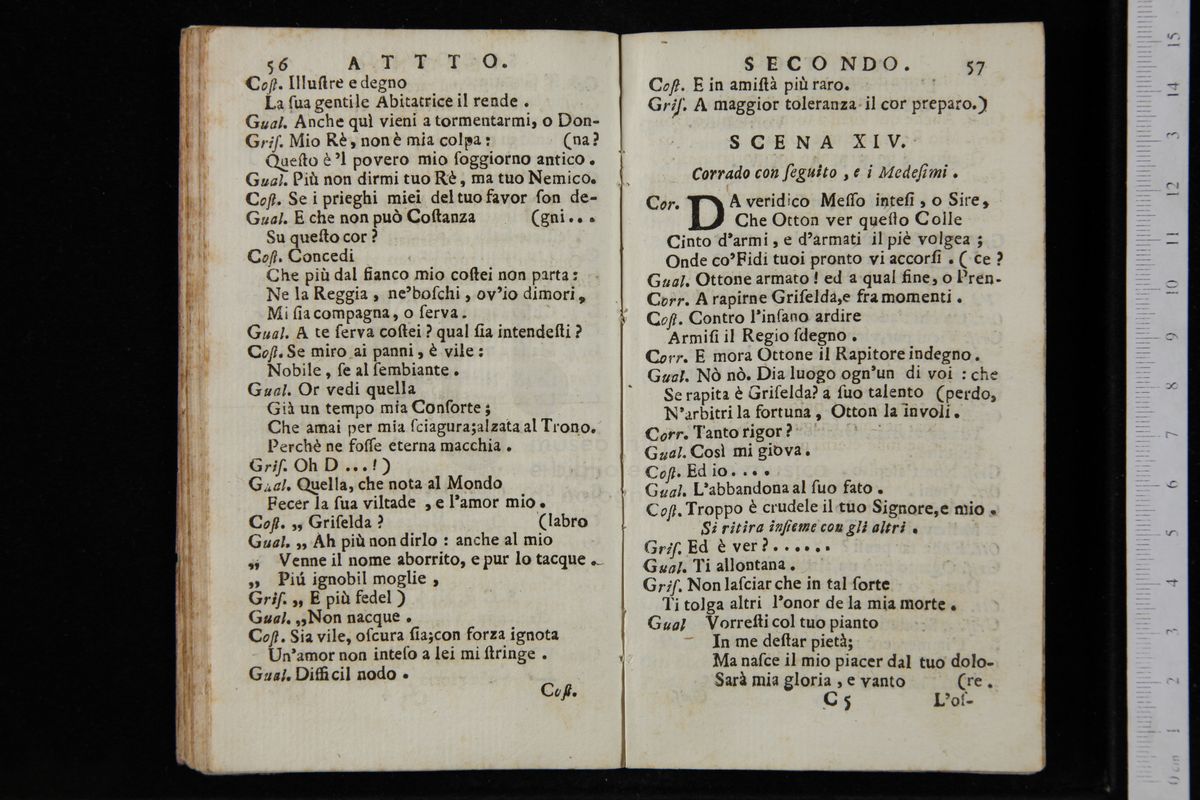 56 A T T T O.
Coſt. Illuſtre e degno
La ſua gentile Abitatrice il rende .
Gual. Anche quì vieni a tormentarmi, o Don-
Griſ. Mio Rè, non è mia colpa : (na?
Queſto è 'l povero mio ſoggiorno antico .
Gual. Più non dirmi tuo Rè, ma tuo Nemico.
Coſt. Se i prieghi miei del tuo favor ſon de-
Gual. E che non può Coſtanza (gni...
Su queſto cor ?
Coſt. Concedi
Che più dal fianco mio coſtei non parta :
Ne la Reggia , ne'boſchi , ov'io dimori,
Mi ſia compagna, o ſerva.
Gual. A te ſerva coſtei ? qual ſia intendeſti ?
Coſt. Se miro ai panni , è vile :
Nobile , ſe al ſembiante .
Gual. Or vedi quella
Già un tempo mia Conſorte ;
Che amai per mia ſciagura;alzata al Trono.
Perchè ne foſſe eterna macchia .
Griſ. Oh D ...! )
Gual. Quella, che nota al Mondo
Fecer la ſua viltade , e l'amor mio .
Coſt. „ Griſelda ? (labro
Gual. „ Ah più non dirlo : anche al mio
„ Venne il nome aborrito, e pur lo tacque .
„ Piú ignobil moglie ,
Griſ. „ E più fedel )
Gual. „Non nacque .
Coſt. Sia vile, oſcura ſia;con forza ignota
Un'amor non inteſo a lei mi ſtringe .
Gual. Difficil nodo .
Coſt.
SECONDO. 57
Coſt. E in amiſtà più raro.
Griſ. A maggior toleranza il cor preparo.)
SCENA XIV.
Corrado con ſeguito , e i Medeſimi .
Cor. DA veridico Meſſo inteſi , o Sire,
Che Otton ver queſto Colle
Cinto d'armi , e d'armati il piè volgea ;
Onde co'Fidi tuoi pronto vi accorſi . ( ce ?
Gual. Ottone armato ! ed a qual fine, o Pren-
Corr. A rapirne Griſelda,e fra momenti .
Coſt. Contro l'inſano ardire
Armiſi il Regio ſdegno .
Corr. E mora Ottone il Rapitore indegno .
Gual. Nò nò. Dia luogo ogn'un di voi : che
Se rapita è Griſelda? a ſuo talento (perdo,
N'arbitri la fortuna , Otton la involi .
Corr. Tanto rigor ?
Gual. Così mi giova .
Coſt. Ed io . . . .
Gual. L'abbandona al ſuo fato .
Coſt. Troppo è crudele il tuo Signore,e mio .
Si ritira inſieme con gli altri .
Griſ. Ed è ver ? . . . . . .
Gual. Ti allontana .
Griſ. Non laſciar che in tal ſorte
Ti tolga altri l'onor de la mia morte .
Gual Vorreſti col tuo pianto
In me deſtar pietà;
Ma naſce il mio piacer dal tuo dolo-
Sarà mia gloria , e vanto (re .
C 5 L'oſ-